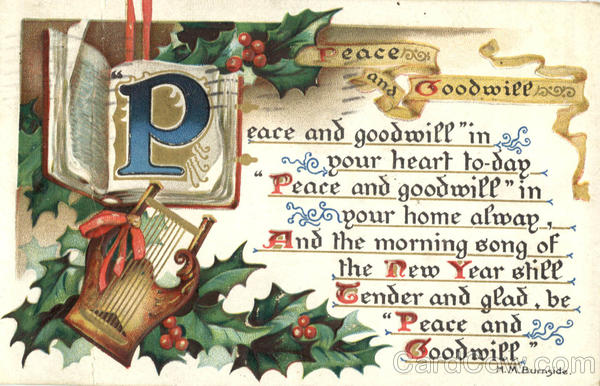 Peace
and Goodwill
"Peace and goodwill" in
your heart to-day
"Peace and goodwill" in
your home alway,
And the morning song of
the New Year still
Tender and glad, be
"Peace and
Goodwill."
H.M. Burnside.
CardCow.com